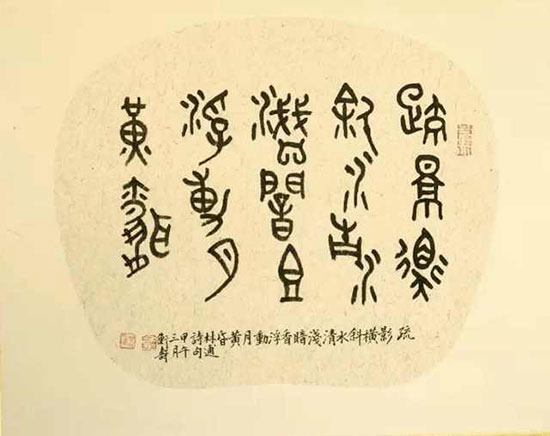 疏影橫
斜水清
淺暗香
浮動月
黃昏
疏影橫斜水清淺暗香浮動月黃昏
林逋
詩句
甲午
三月